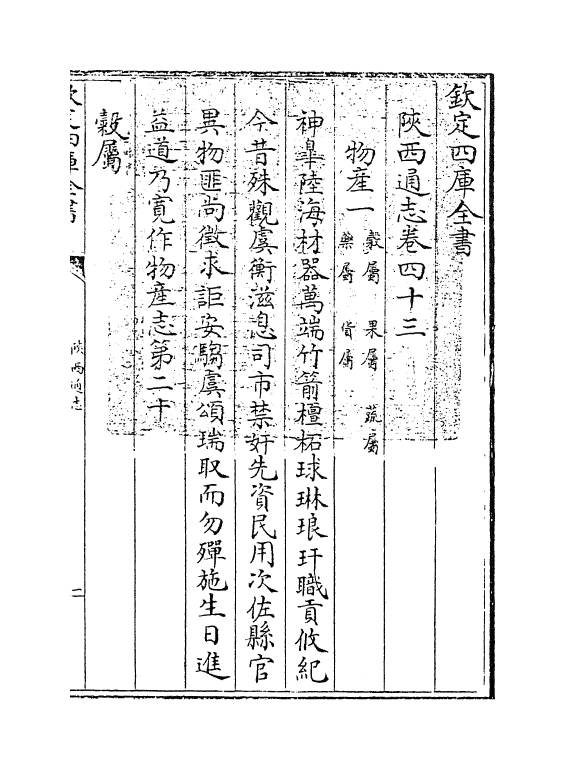 欽定四庫全書
陝西通志卷四十三
物産一
穀屬 果屬 蔬屬
藥屬 貨屬
神臯陸海材器萬端竹箭檀柘球琳琅玕職貢攸紀
今昔殊觀虞衡滋息司市禁奸先資民用次佐縣官
異物匪尚徵求詎安騶虞頌瑞取而勿殫施生日進
益道乃寛作物産志第二十
穀屬
欽定四庫全書
陜西通志
一